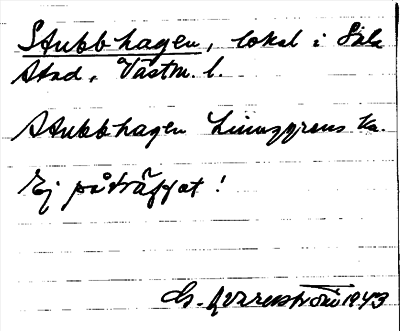 Stubbhagen, lokal i Sala
Stad, Västm. l.
Stubbhagen Linnggrens ka.
Ej påträffat!
G. 1943